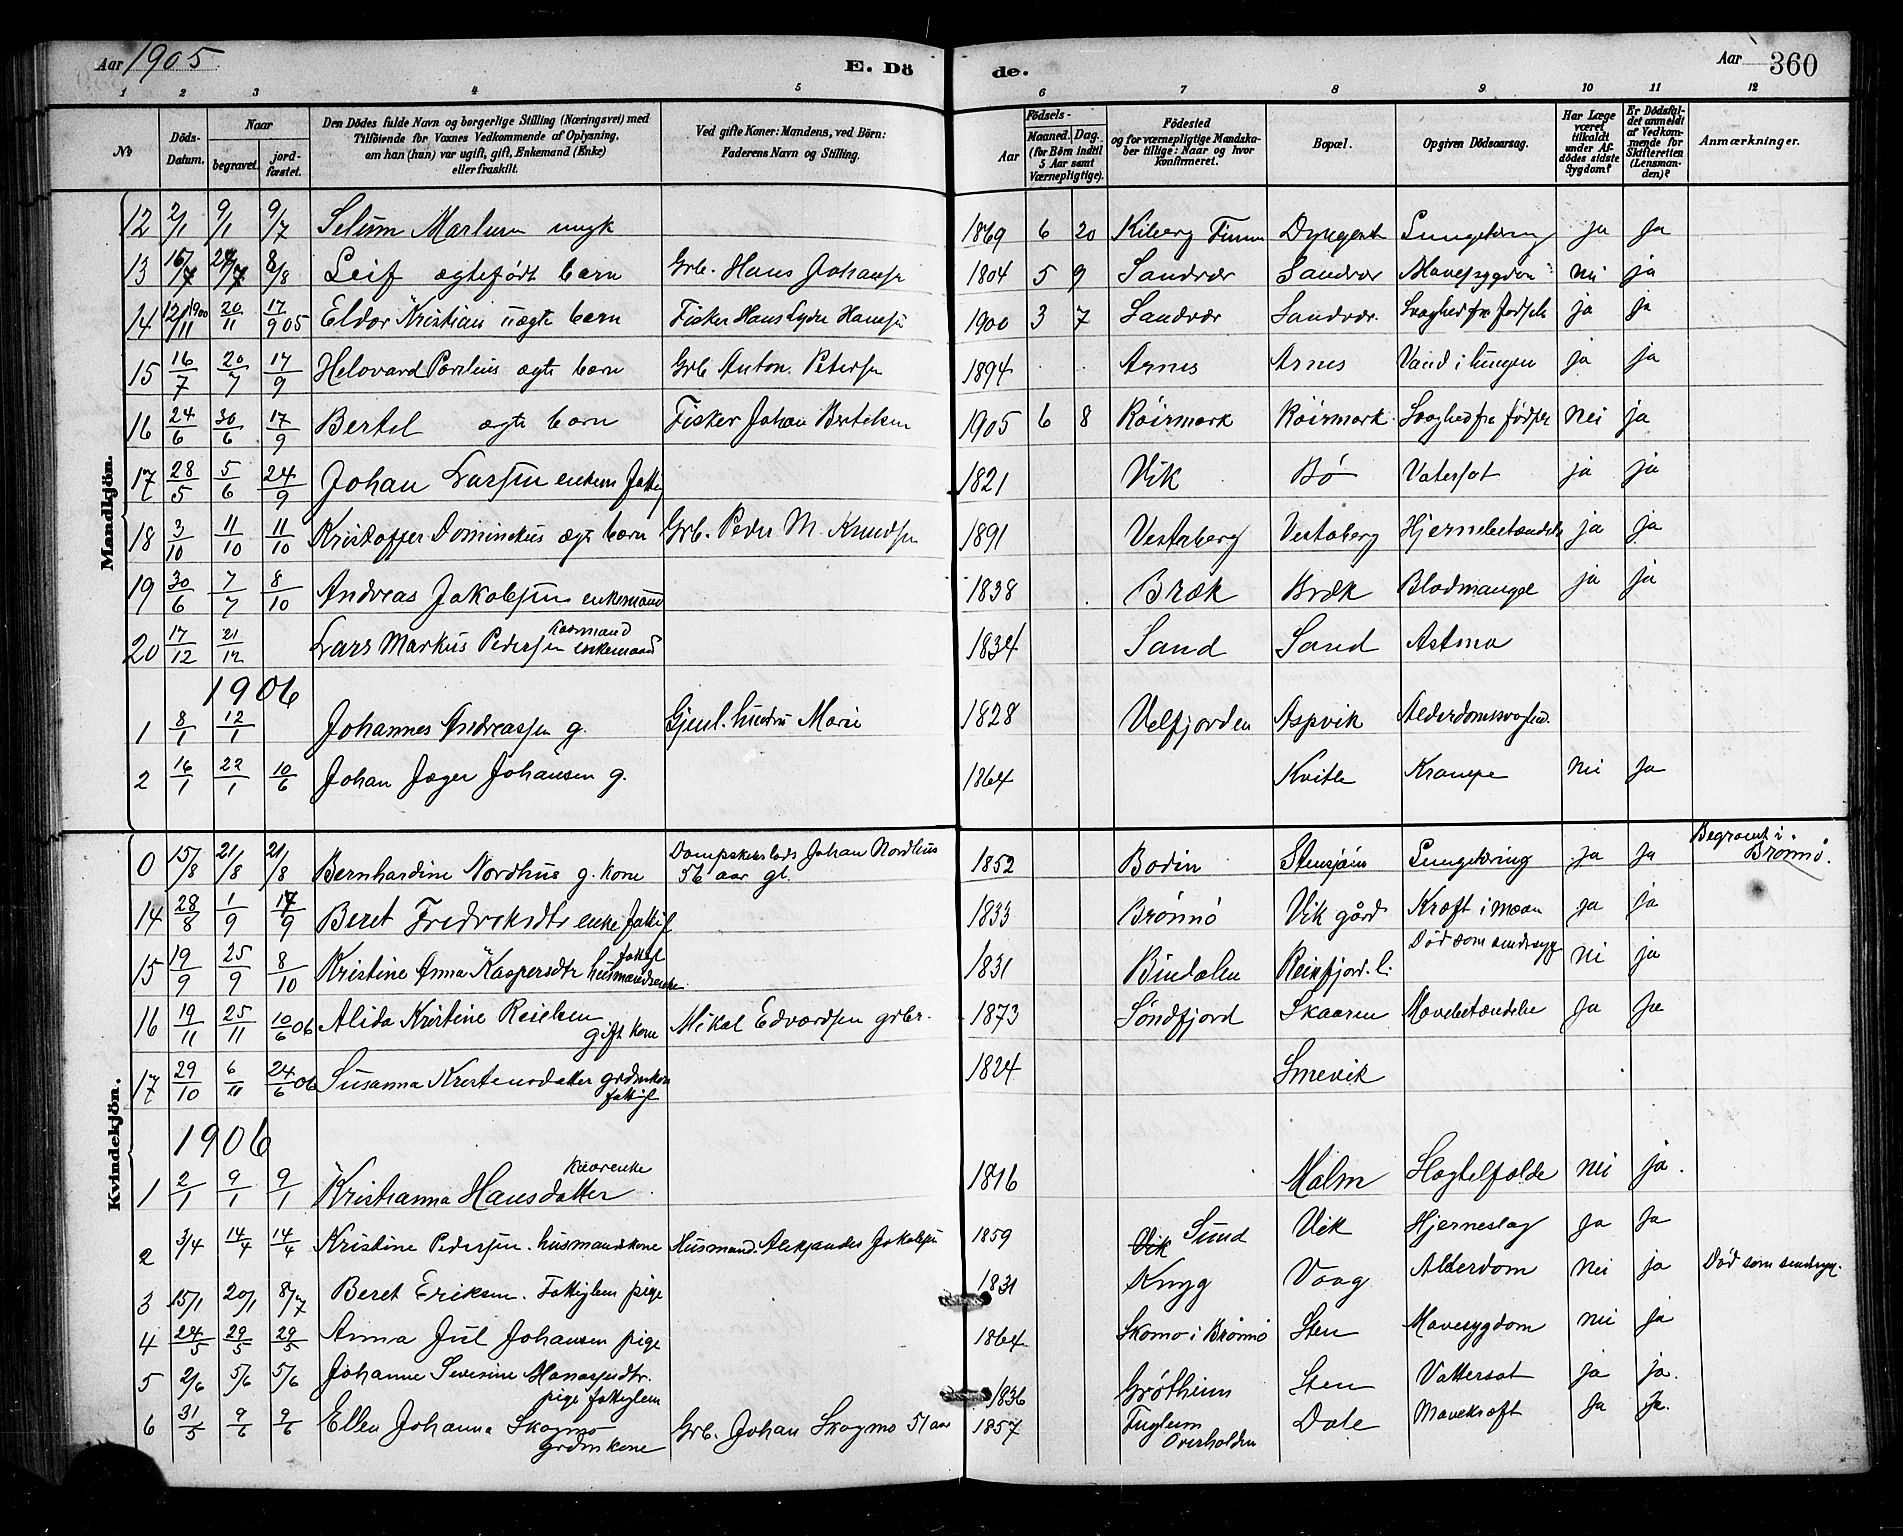 Aar 1905
E. Döde.
Aar 360
1 2 3 4 5 6 7 8 9 10 11 12
№
Döds-Datum.
Naar
begravet.
jord-fæstet.
Den Dödes fulde Navn og borgerlige Stilling (Næringsvei) med
Tilföiende for Voxnes Vedkommende af Oplysning,
om han (hun) var ugift, gift, Enkemand (Enke)
eller fraskilt.
Ved gifte Koner: Mandens, ved Börn:
Faderens Navn og Stilling.
Födsels-
Aar
Maaned.
Dag.
(for Børn indtil
5 Aar samt
Værnepligtige).
Födested
og for værnepligtige Mandska-
ber tillige: Naar og hvor
konfirmeret.
Bopæl.
Opgiven Dödsaarsag.
Har Læge
været
tilkaldt
under Af-
dödes sidste
Sygdom?
Er Dödsfal-
det anmeldt
af Vedkom-
mende for
Skifteretten
(Lensman-
den)?
Anmærkninger.
Mandkjön.
12 2/1 9/1 9/7 Selum Marlun ungk 1869 6 20 Kiberg Finm Lungetæring ja Ja
13 16/7 24/7 8/8 Leif ægtefødt barn Grb. Hans Johansen 1804 5 9 Sandvær Sandvær Mavesygdom nei ja
14 12/11 1900 20/11 17/9 05 Eldor Kristian uægte barn Fisker Hans Lyder Hansen 1900 3 7 Sandvær Sandvær. Svaghed fra Fødsele ja ja
15 16/7 20/7 17/9 ægte barn Grb Anton Petersen 1894 Arnes Arnes Vand i lungen ja ja
16 24/6 30/6 17/9 Bertel ægte barn Fisker Johan Bertelsen 1905 6 8 Röirmark Röirmark Svaghed fra fødsel nei ja
17 28/5 5/6 24/9 Johan Larsen enkem fattig 1821 Vik Bö Vatersot ja ja
18 3/10 11/10 11/10 Kristoffer Dominekus ægte barn Grb. Peder M. Knudsen 1891 Vesterberg Vestaberg Hjernebetændelse ja ja
19 30/6 7/7 8/10 Andreas Jakobsen enkemand 1838 Bræk Bræk Blodmangel ja ja
20 17/12 21/12 Lars Markus Pedersen kaarmand enkemand 1834 Sand Sand Astma
1906
1 8/1 12/1 Johannes Andreassen g. Gjenl. hustru Marie 1828 Velfjorden Aspvik Alderdomssvaghed.
2 16/1 22/1 10/6 Johan Jæger Johansen g. 1864 Kvitle Krampe nei Ja
Kvindekjön.
0 15/8 21/8 21/8 Bernhardine Nordhus g. kone Johan Nordhus 56 aar gl. 1852 Bodin Lungetæring ja Ja Begravet i Brønnø.
14 28/8 1/9 17/9 Beret Fredriksdtr enke fattigl 1833 Brönnö Vik gård Kræft i maven ja ja
15 19/9 25/9 8/10 Kristine Anna Kaspersdtr fattigl husmandsenke 1831 Bindalen Reinfjord. Död som sindssyg nei ja
16 19/11 25/11 10/6 06 Alida Kristine gift kone Mikal Edvardsen grbr. 1873 Söndfjord Skaaren Mavebetændelse Ja Ja
17 29/10 6/11 24/6 06 Susanna Kristensdatter grdmkone fattigl 1824 Smevik
1906
1 2/1 9/1 9/1 Kristianna Hansdatter kaarenke 1816 Malm Slagtilfælde nei ja.
2 3/4 14/4 14/4 Kristine Pedersen. husmandskone Husmand. Aleksander Jakobsen 1859 Vik Sund Vik Hjerneslag Ja Ja
3 15/1 20/1 8/7 Beret Eriksen. Fattiglem pige 1831 Kmyg Vaag Alderdom nei ja Död som sindssyg.
4 24/5 29/5 29/5 Anna Jul Johansen pige 1864 Skomo i Brönnö Sten Mavesygdom nei ja
5 2/6 5/6 5/6 Johanne Severine Hansdtr. pige fattiglem 1836 Grötheim Sten Vattersot ja ja.
6 31/5 9/6 9/6 Ellen Johanna Skogmo grdmkone Grb. Johan Skogmo 51 aar 1857 Fuglem Overhalden Dale Mavekræft Ja Ja.